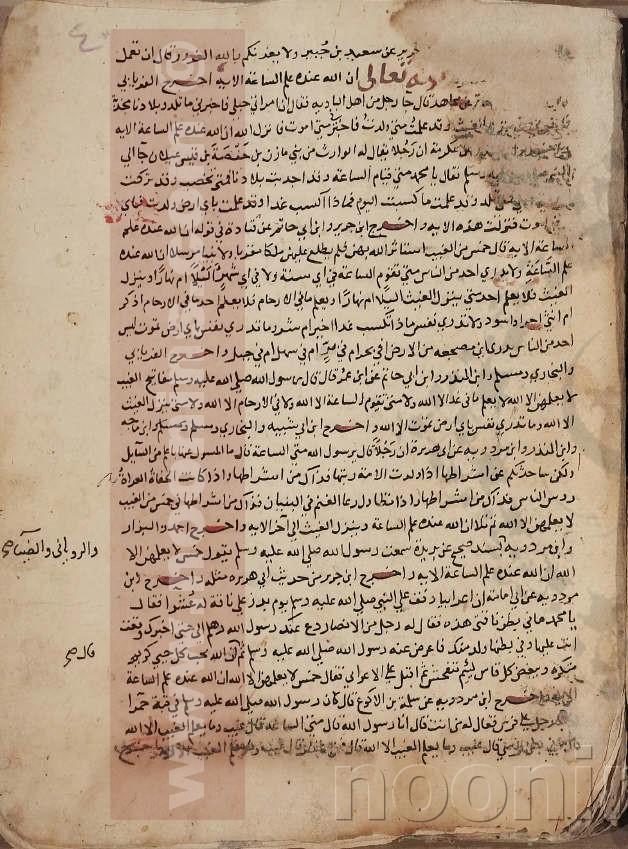 جرير عن سعيد بن جبير ولا يغرنكم بالله الغرور قال ان تعمل
قوله تعالى ان الله عنده علم الساعة الايه اخرج الفريابي
مجاهد قال جا رجل من اهل الباديه فقال ان امراتي حبلى فاخبرني ما تلد وبلادنا مجدبة
الغيث وقد علمت متى ولدت فاخبرني متى اموت فانزل الله ان الله عنده علم الساعة الايه
عن عكرمة ان رجلا يقال له الوارث من بني مازن بن حفصة بن قيس عيلان جا الى
وسلم فقال يا محمد متى قيام الساعه وقد اجدبت بلادنا فمتى تخصب وقد تركت
تلد وقد علمت ما كسبت اليوم فماذا اكسب غدا وقد علمت باي ارض ولدت فباي
اموت فنزلت هذه الايه واخرج ابن جرير وابن ابي حاتم عن قتادة في قوله ان الله عنده علم
الساعه الايه قال خمس من الغيب استاثر الله بهن فلم يطلع عليهن ملكا مقربا ولا نبيا مرسلا ان الله عنده
علم الساعة ولا يدري احد من الناس متى تقوم الساعه في اي سنة ولا في اي شهر ليلا ام نهارا وينزل
الغيث فلا يعلم احد متى ينزل الغيث ليلا ام نهارا ويعلم ما في الارحام فلا يعلم احد ما في الارحام اذكر
ام انثى احمر او اسود ولا تدري نفس ماذا تكسب غدا اخير ام شر وما تدري نفس باي ارض تموت ليس
احد من الناس يدري اين مضجعه من الارض افي بحر ام في بر ام في سهل ام في جبل واخرج الفريابي
والبخاري ومسلم وابن المنذر وابن ابي حاتم عن ابن عمر قال قال رسول الله صلى الله عليه وسلم مفاتيح الغيب
لا يعلمهن الا الله لا يعلم ما في غد الا الله ولا متى تقوم الساعة الا الله ولا ما في الارحام الا الله ولا متى ينزل الغيث
الا الله وما تدري نفس باي ارض تموت الا الله واخرج ابن ابي شيبه والبخاري ومسلم وابن ماجه
وابن المنذر وابن مردويه عن ابي هريرة ان رجلا قال يرسول الله متى الساعة قال ما المسول عنها باعلم من السايل
ولكن ساحدثكم عن اشراطها اذا ولدت الامة ربتها فذاك من اشراطها واذا كانت الحفاة العراة
روس الناس فذاك من اشراطها واذا تطاول رعا الغنم في البنيان فذاك من اشراطها في خمس من الغيب
لا يعلمهن الا الله ثم تلا ان الله عنده علم الساعة وينزل الغيث الى آخر الايه واخرج احمد والبزار
وابن مردويه بسند صحيح عن بريدة سمعت رسول الله صلى الله عليه وسلم يقول خمس لا يعلمهن الا
والرويانى والضيا صح
الله ان الله عنده علم الساعة الايه واخرج ابن جرير من حديث ابي هريره مثله واخرج ابن
مردويه عن ابي امامة ان اعرابيا وقف على النبي صلى الله عليه وسلم يوم بدر على ناقة له عشرا فقال
يا محمد ما في بطن ناقتي هذه فقال له رجل من الانصار دع عنك رسول الله وهلم الي حتى اخبرك وقعت
انت عليها وفي بطنها ولد منك فاعرض عنه رسول الله صلى الله عليه وسلم ثم ان الله يحب كل حيي كريم
قال صح
متكره ويبغض كل قاس لئيم متفحش ثم اقبل على الاعرابي فقال خمس لا يعلمهن الا الله ان الله عنده علم الساعة
الايه واخرج ابن مردويه عن سلمة بن الاكوع قال كان رسول الله صلى الله عليه وسلم في قبة حمرا
رجل على فرس فقال له من انت قال انا رسول الله قال متى الساعة قال غيب وما يعلم الغيب الا الله
قال غيب وما يعلم الغيب الا الله قال
noonir